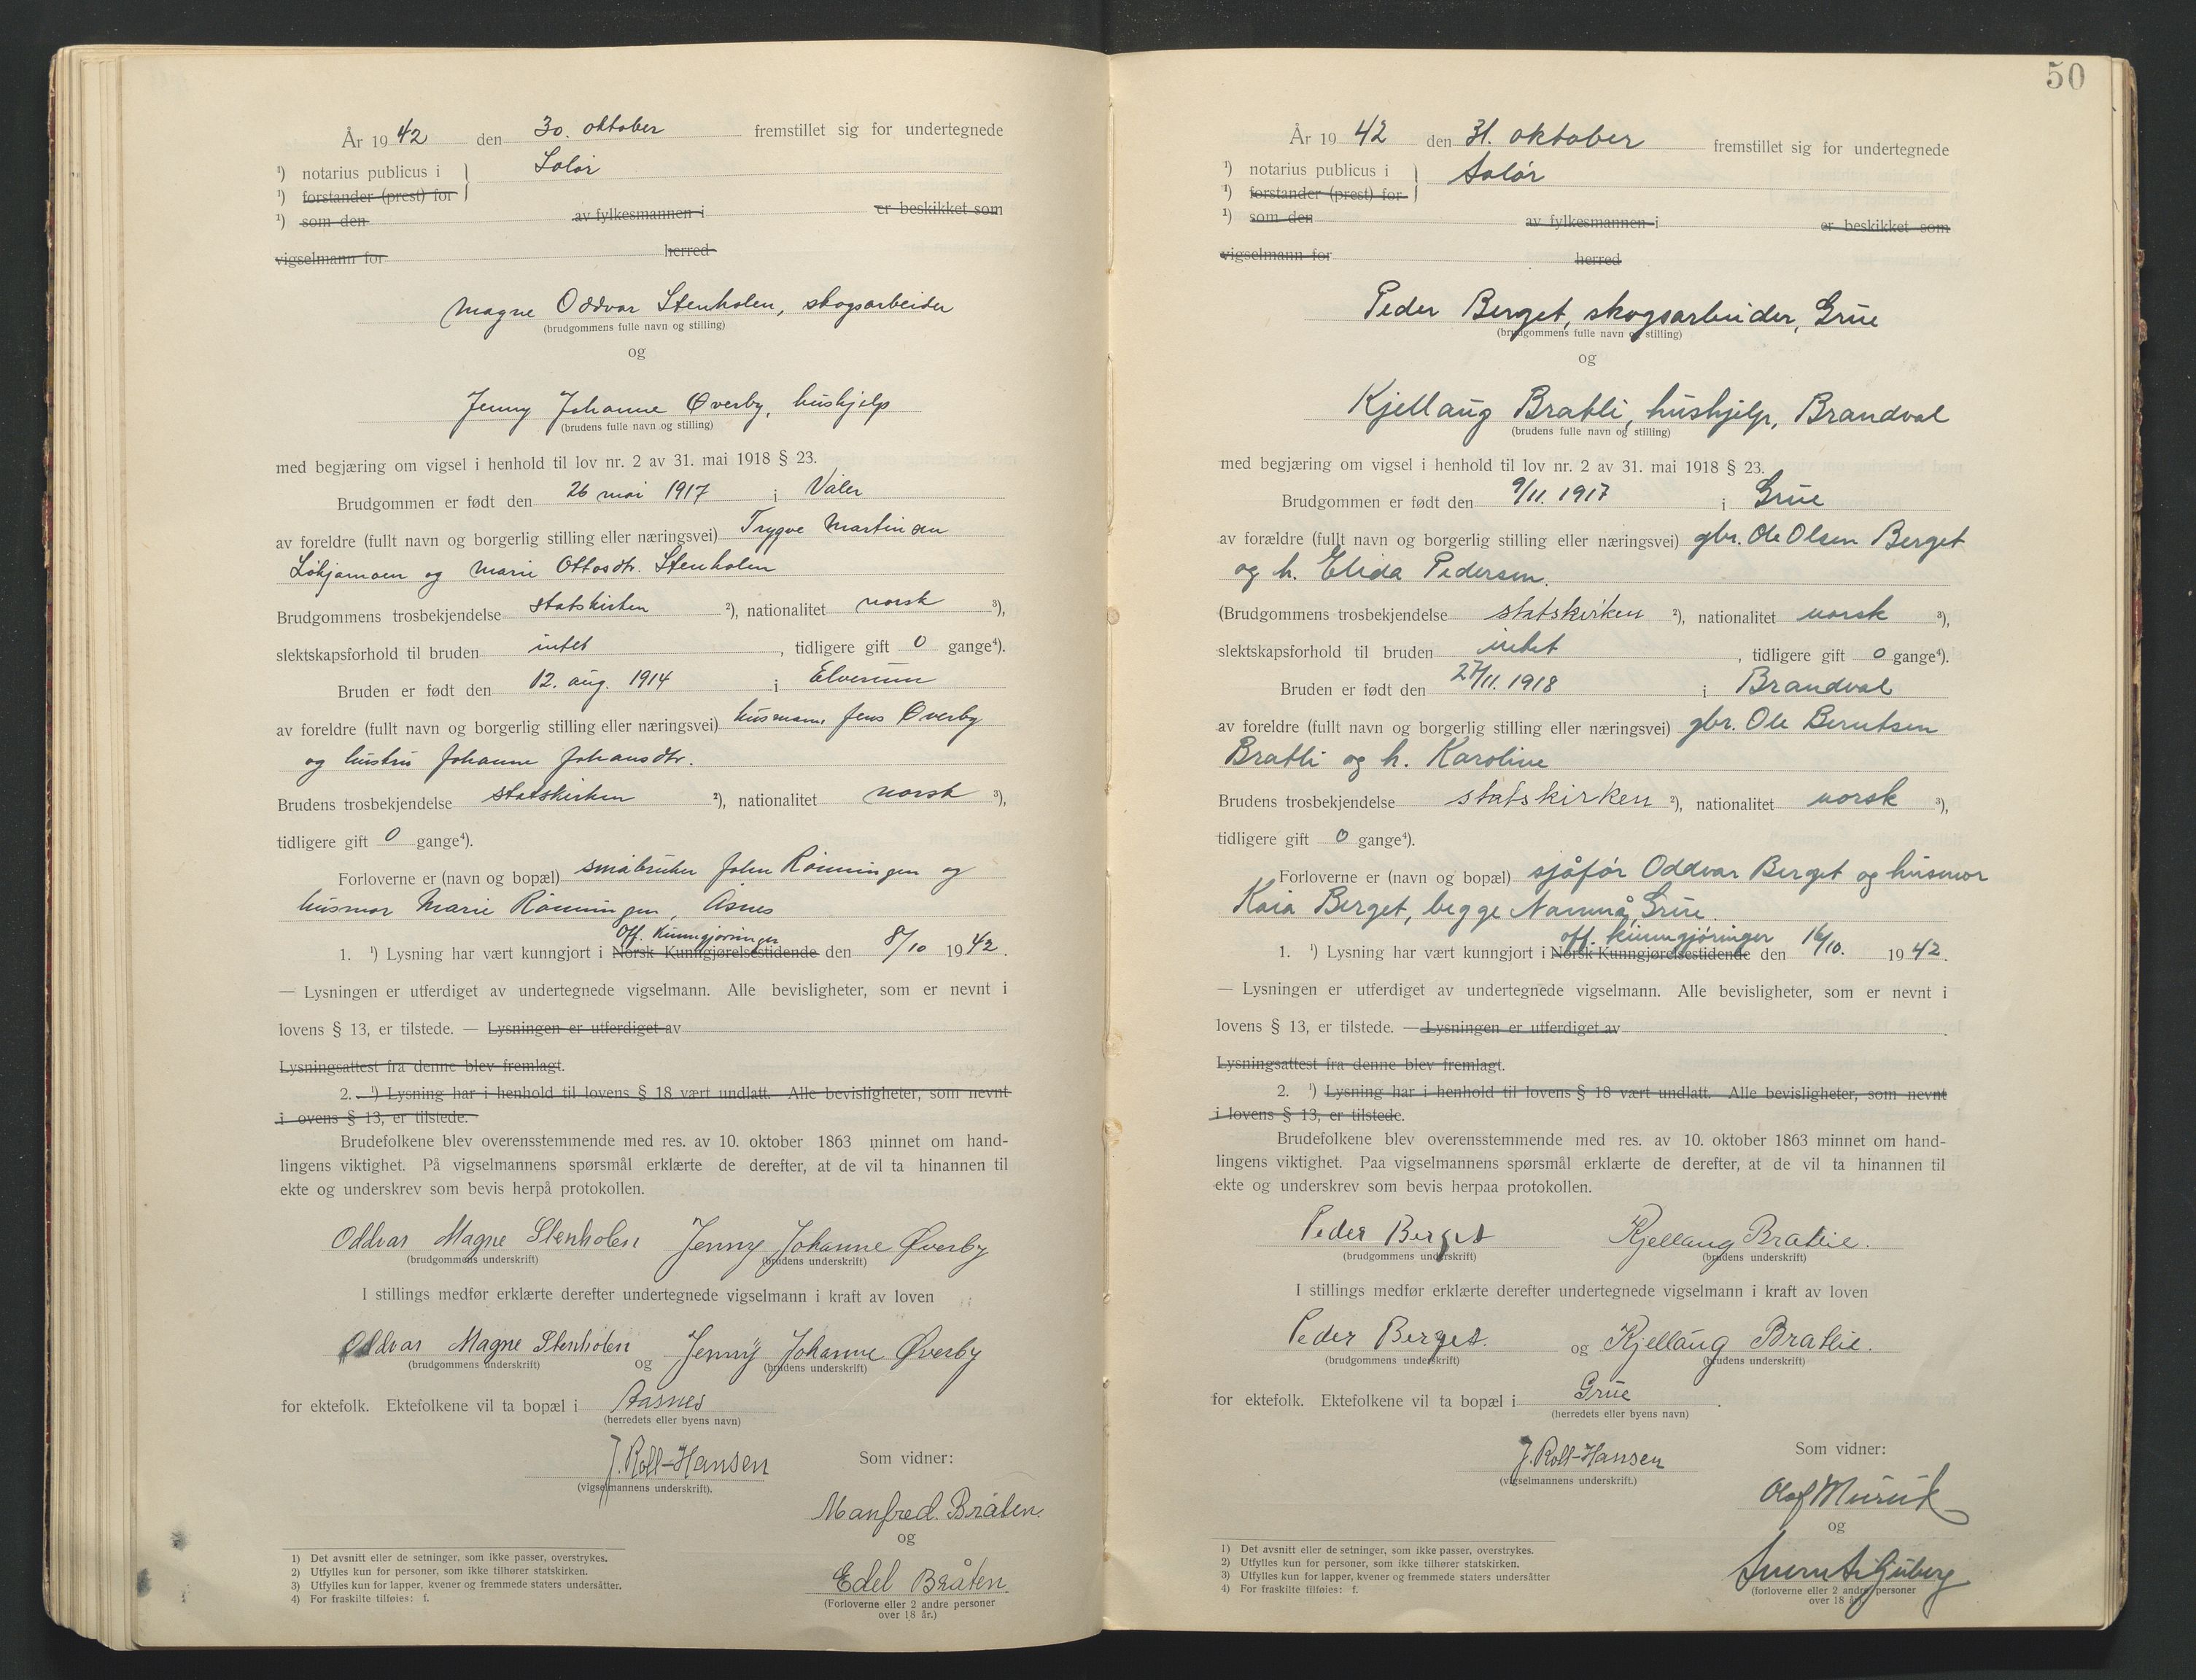 År 1942 den 30. oktober fremstillet sig for undertegnede
¹) notarius publicus i } Solør
¹) forstander (prest) for
¹) som den av fylkesmannen i er beskikket som
vigselmann for herred
Magne Oddvar Stenholen, skogsarbeider
(brudgommens fulle navn og stilling)
og
Jenny Johanne Øverby, hushjelp
(brudens fulle navn og stilling)
med begjæring om vigsel i henhold til lov nr. 2 av 31. mai 1918 § 23.
Brudgommen er født den 26 mai 1917 i Våler
av foreldre (fullt navn og borgerlig stilling eller næringsvei) Trygve Martinsen
og Marie Ottosdtr. Stenholen
Brudgommens trosbekjendelse statskirken ²), nationalitet norsk ³),
slektskapsforhold til bruden intet, tidligere gift 0 gange⁴).
Bruden er født den 12. aug. 1914 i Elverum
av foreldre (fullt navn og borgerlig stilling eller næringsvei) husmann Jens Øverby
og hustru Johanne Johansdtr.
Brudens trosbekjendelse statskirken ²), nationalitet norsk ³),
tidligere gift 0 gange⁴).
Forloverne er (navn og bopæl) småbruker John Rönningen og
husmor Marie Rönningen, Åsnes
off. kunngjøringer
1. ¹) Lysning har vært kunngjort i Norsk Kunngjørelsestidende den 8/10 1942.
— Lysningen er utferdiget av undertegnede vigselmann. Alle bevisligheter, som er nevnt i
lovens § 13, er tilstede. — Lysningen er utferdiget av
Lysningsattest fra denne blev fremlagt.
2. ¹) Lysning har i henhold til lovens § 18 vært undlatt. Alle bevisligheter, som nevnt
i ovens § 13, er tilstede.
Brudefolkene blev overensstemmende med res. av 10. oktober 1863 minnet om hand-
lingens viktighet. På vigselmannens spørsmål erklærte de derefter, at de vil ta hinannen til
ekte og underskrev som bevis herpå protokollen.
Oddvar Magne Stenholen Jenny Johanne Øverby
(brudgommens underskrift) (brudens underskrift)
I stillings medfør erklærte derefter undertegnede vigselmann i kraft av loven
Oddvar Magne Stenholen og Jenny Johanne Øverby
(brudgommens underskrift) (brudens underskrift)
for ektefolk. Ektefolkene vil ta bopæl i Aasnes
(herredets eller byens navn)
J. Roll-Hansen
(vigselmannens underskrift).
Som vidner:
Manfred Bråten.
og
Edel Bråten.
(Forloverne eller 2 andre personer
over 18 år.)
1) Det avsnitt eller de setninger, som ikke passer, overstrykes.
2) Utfylles kun for personer, som ikke tilhører statskirken.
3) Utfylles kun for lapper, kvener og fremmede staters undersåtter.
4) For fraskilte tilføies: f.
50
År 1942 den 31. oktober fremstillet sig for undertegnede
¹) notarius publicus i } Solør
¹) forstander (prest) for
¹) som den av fylkesmannen i er beskikket som
vigselmann for herred
Peder Berget, skogsarbeider, Grue
(brudgommens fulle navn og stilling)
og
Kjellaug Bratli, hushjelp, Brandval
(brudens fulle navn og stilling)
med begjæring om vigsel i henhold til lov nr. 2 av 31. mai 1918 § 23.
Brudgommen er født den 9/11. 1917 i Grue
av forældre (fullt navn og borgerlig stilling eller næringsvei) gbr. Ole Olsen Berget
og h. Elida Pedersen.
(Brudgommens trosbekjendelse statskirken ²), nationalitet norsk ³),
slektskapsforhold til bruden intet, tidligere gift 0 gange⁴).
Bruden er født den 27/11. 1918 i Brandval
av foreldre (fullt navn og borgerlig stilling eller næringsvei) gbr. Ole Berntsen
Bratli og h. Karoline
Brudens trosbekjendelse statskirken ²), nationalitet norsk ³),
tidligere gift 0 gange⁴).
Forloverne er (navn og bopæl) sjåfør Oddvar Berget og husmor
Kaia Berget, begge Namnå, Grue.
off. kunngjøringer
1. ¹) Lysning har vært kunngjort i Norsk Kunngjørelsestidende den 16/10. 1942.
— Lysningen er utferdiget av undertegnede vigselmann. Alle bevisligheter, som er nevnt i
lovens § 13, er tilstede. — Lysningen er utferdiget av
Lysningsattest fra denne blev fremlagt.
2. ¹) Lysning har i henhold til lovens § 18 vært undlatt. Alle bevisligheter, som nevnt
i lovens § 13, er tilstede.
Brudefolkene blev overensstemmende med res. av 10. oktober 1863 minnet om hand-
lingens viktighet. Paa vigselmannens spørsmål erklærte de derefter, at de vil ta hinannen til
ekte og underskrev som bevis herpaa protokollen.
Peder Berget Kjellaug Bratlie.
(brudgommens underskrift) (brudens underskrift)
I stillings medfør erklærte derefter undertegnede vigselmann i kraft av loven
Peder Berget. og Kjellaug Bratlie.
(brudgommens underskrift) (brudens underskrift)
for ektefolk. Ektefolkene vil ta bopæl i Grue.
(herredets eller byens navn)
J. Roll-Hansen
(vigselmannens underskrift.)
Som vidner:
Olof
og
(forloverne eller 2 andre personer
over 18 år.)
1) Det avsnitt eller de setninger, som ikke passer, overstrykes.
2) Utfylles kun for personer, som ikke tilhører statskirken.
3) Utfylles kun for lapper, kvener og fremmede staters undersåtter
4) For fraskilte tilføies: f.